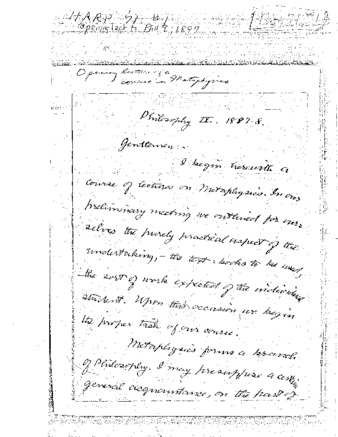 HARP 71 #1
Opening lect to Phil 9, 1897
Opening lecture in a
course in Metaphysics
Philosophy IX. 1897-8.
Gentlemen:-
I begin herewith a
course of lectures on Metaphysics. In our
preliminary meeting we outlined for our-
selves the purely practical aspect of the
undertaking,- the text-books to be used,
the sort of work expected of the individual
student. Upon this occasion we begin
the proper task of our course.
Metaphysics forms a branch
of Philosophy. I may presuppose a certain
general acquaintance, on the part of